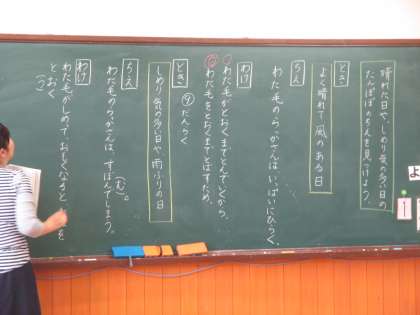 晴れた日や、しめり気の多い日の
たんぽぽのちえを見つけよう。
とき
よく晴れて風のある日
ちえ
わた毛のらっかさんは、いっぱいにひらく。
わけ
わた毛がとおくまでとんでいくから。
わた毛をとおくまでとばすため。
⑨だんらく
とき
しめり気の多い日や、雨ふりの日
ちえ
わた毛のらっかさんは、すぼんでしまう。
(む)
わけ
わた毛がしめって、おもくなると、
とおく
よ
1